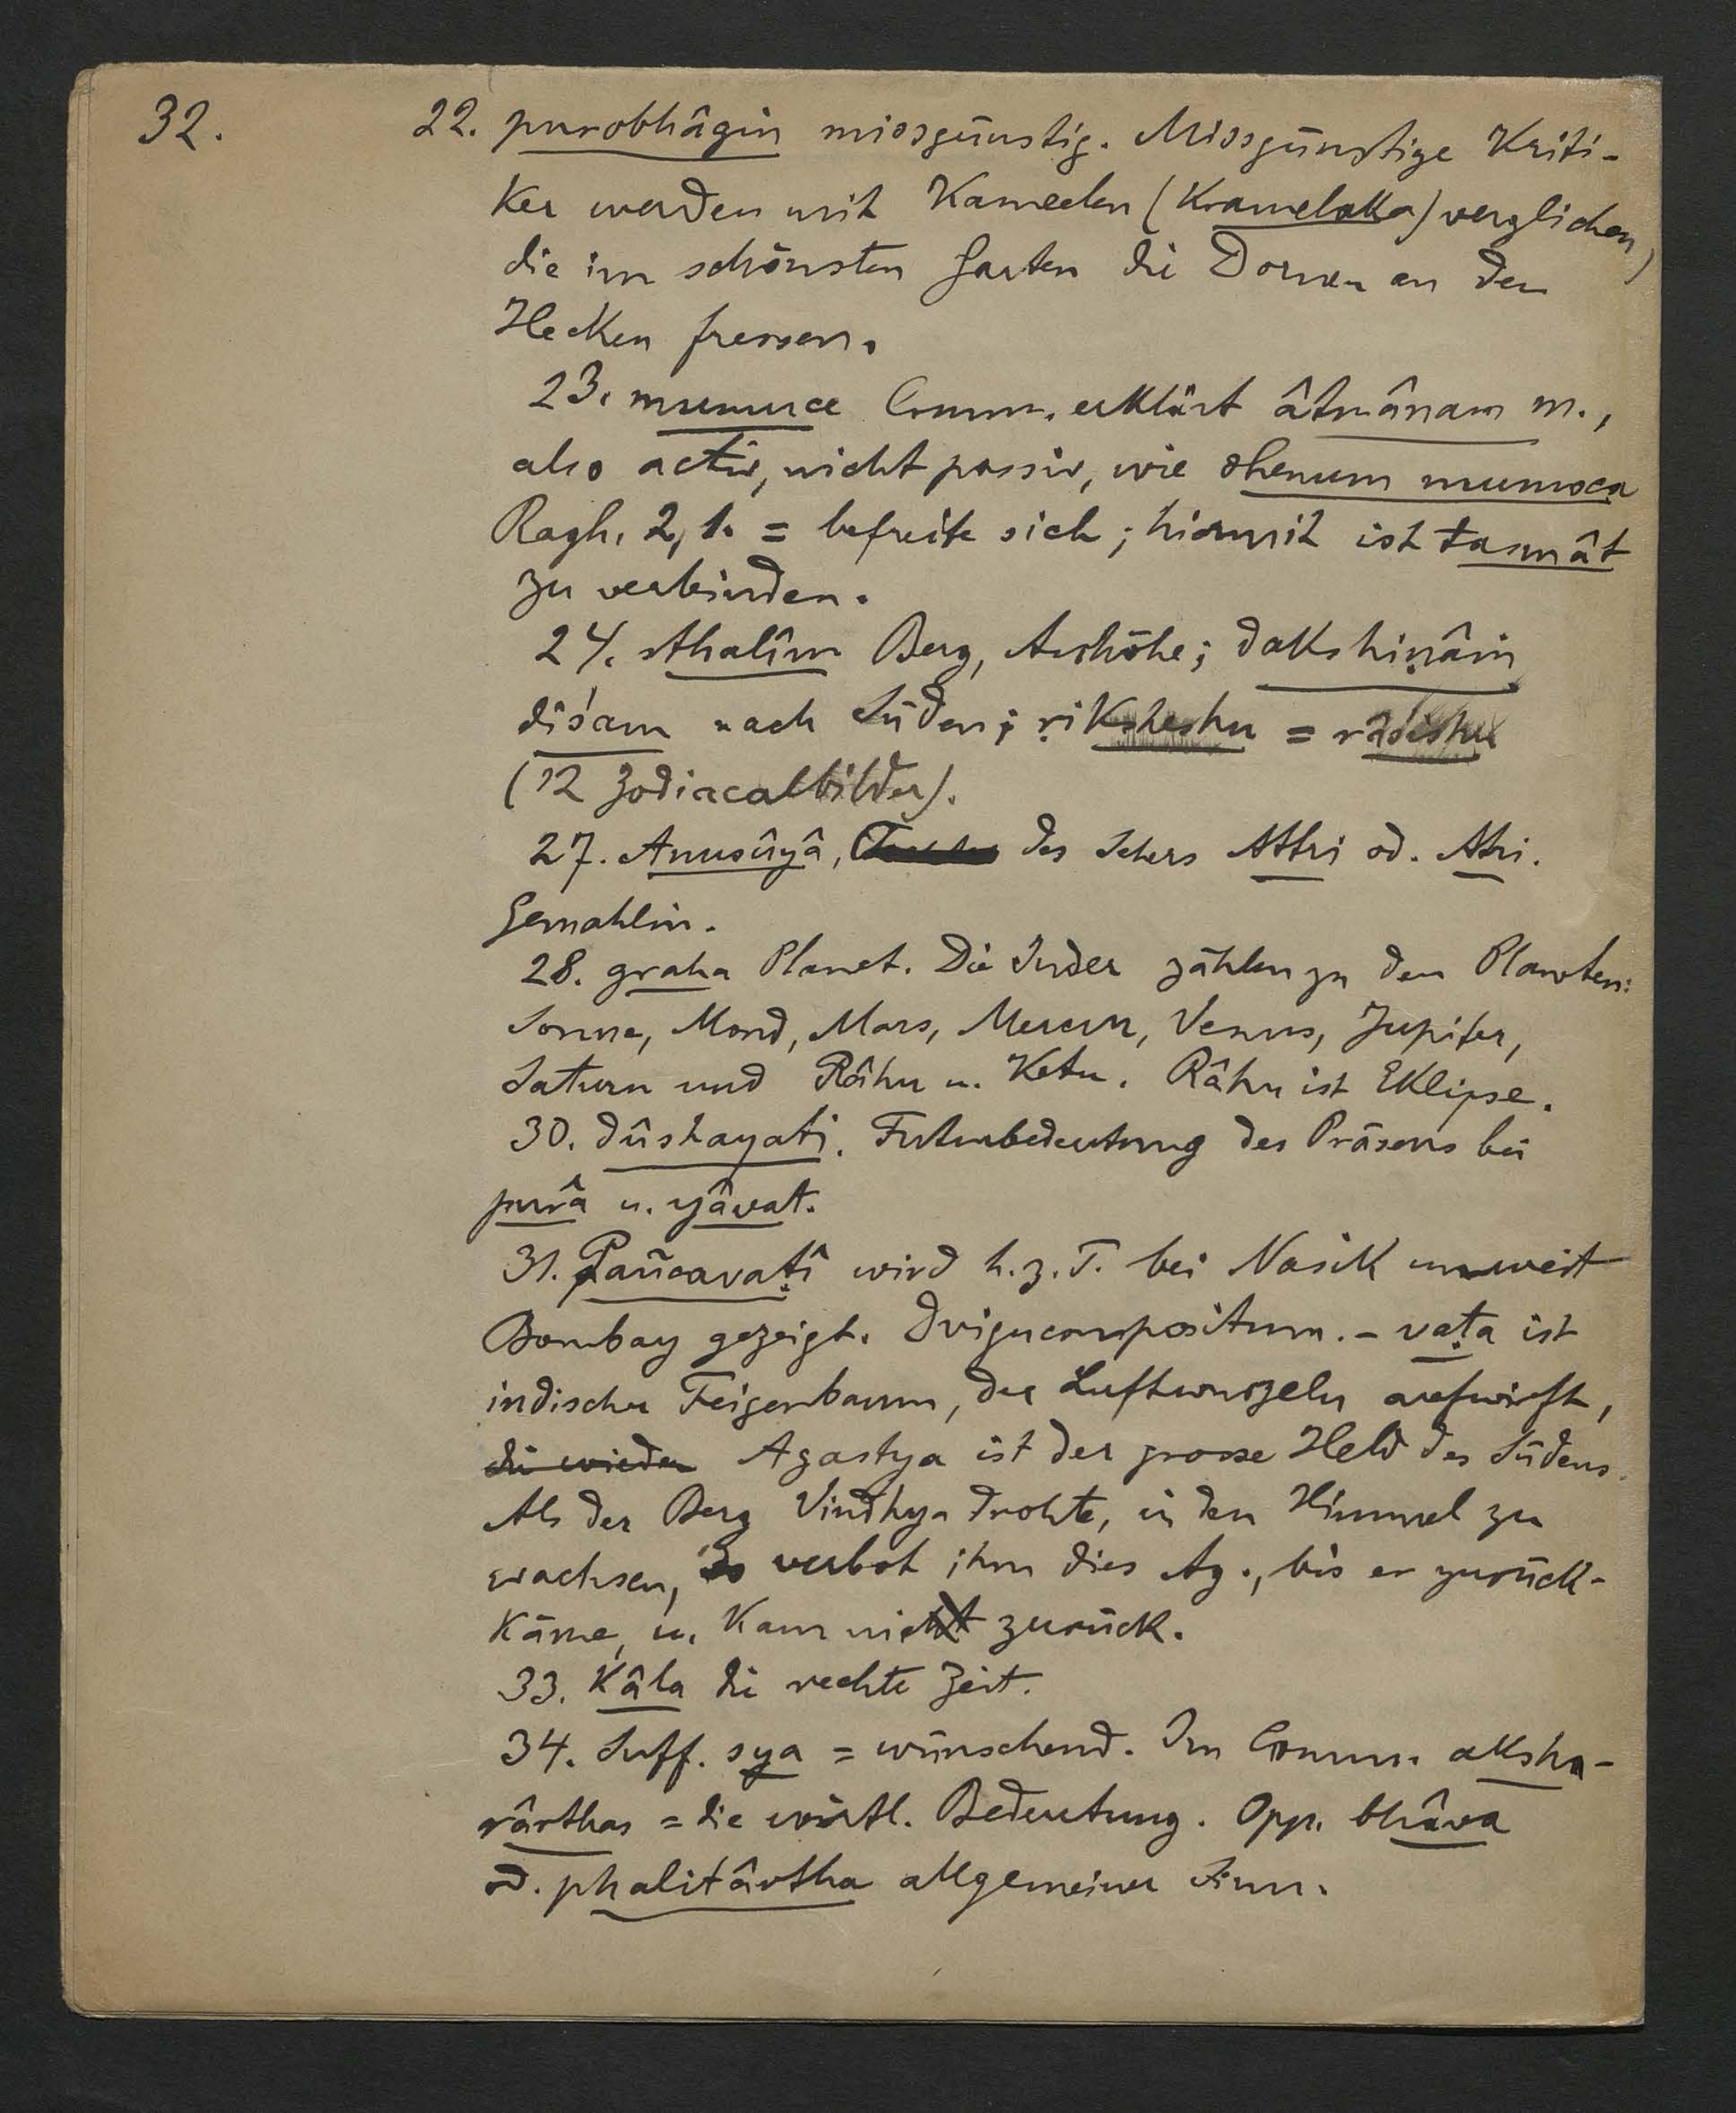 32.
22. purobhâgin missgünstig. Missgünstige Kriti-
ker werden mit Kameelen (Kramelaka) verglichen,
die im schönsten Garten die Dornen an den
Hecken fressen.
23. mumuce Comm. erklärt âtmânam m.,
also activ, nicht passiv, wie dhenum mumoca
Ragh. 2, 1. = befreite sich; hiermit ist tasmât
zu verbinden.
24. sthalîm Berg, Anhöhe; dakshiṇâṃ
diśam nach Süden; ṛiksheshu = râśishu
(12 Zodiacalbilder).
27. Anusûyâ, des Sehers Attri od. Atri.
Gemahlin.
28. graha Planet. Die Inder zählen zu den Planeten:
Sonne, Mond, Mars, Mercur, Venus, Jupiter,
Saturn und Râhu u. Ketu. Râhu ist Eklipse.
30. dûshayati. Futurbedeutung des Präsens bei
purâ u. yâvat.
31. Pañcavaṭî wird h. z. T. bei Nasik unweit
Bombay gezeigt. Dvigucompositum. - vaṭa ist
indischer Feigenbaum, der Luftwurzeln aufwirft,
die wieder Agastya ist der grosse Held des Südens.
Als der Berg Vindhya drohte, in den Himmel zu
wachsen, so verbot ihm dies Ag., bis er zurück-
käme, u. kam nicht zurück.
33. Kâla die rechte Zeit.
34. Suff. sya = wünschend. Im Comm. aksha-
rârthas = die wörtl. Bedeutung. Opp. bhâva
od. phalitârtha allgemeiner Sinn.